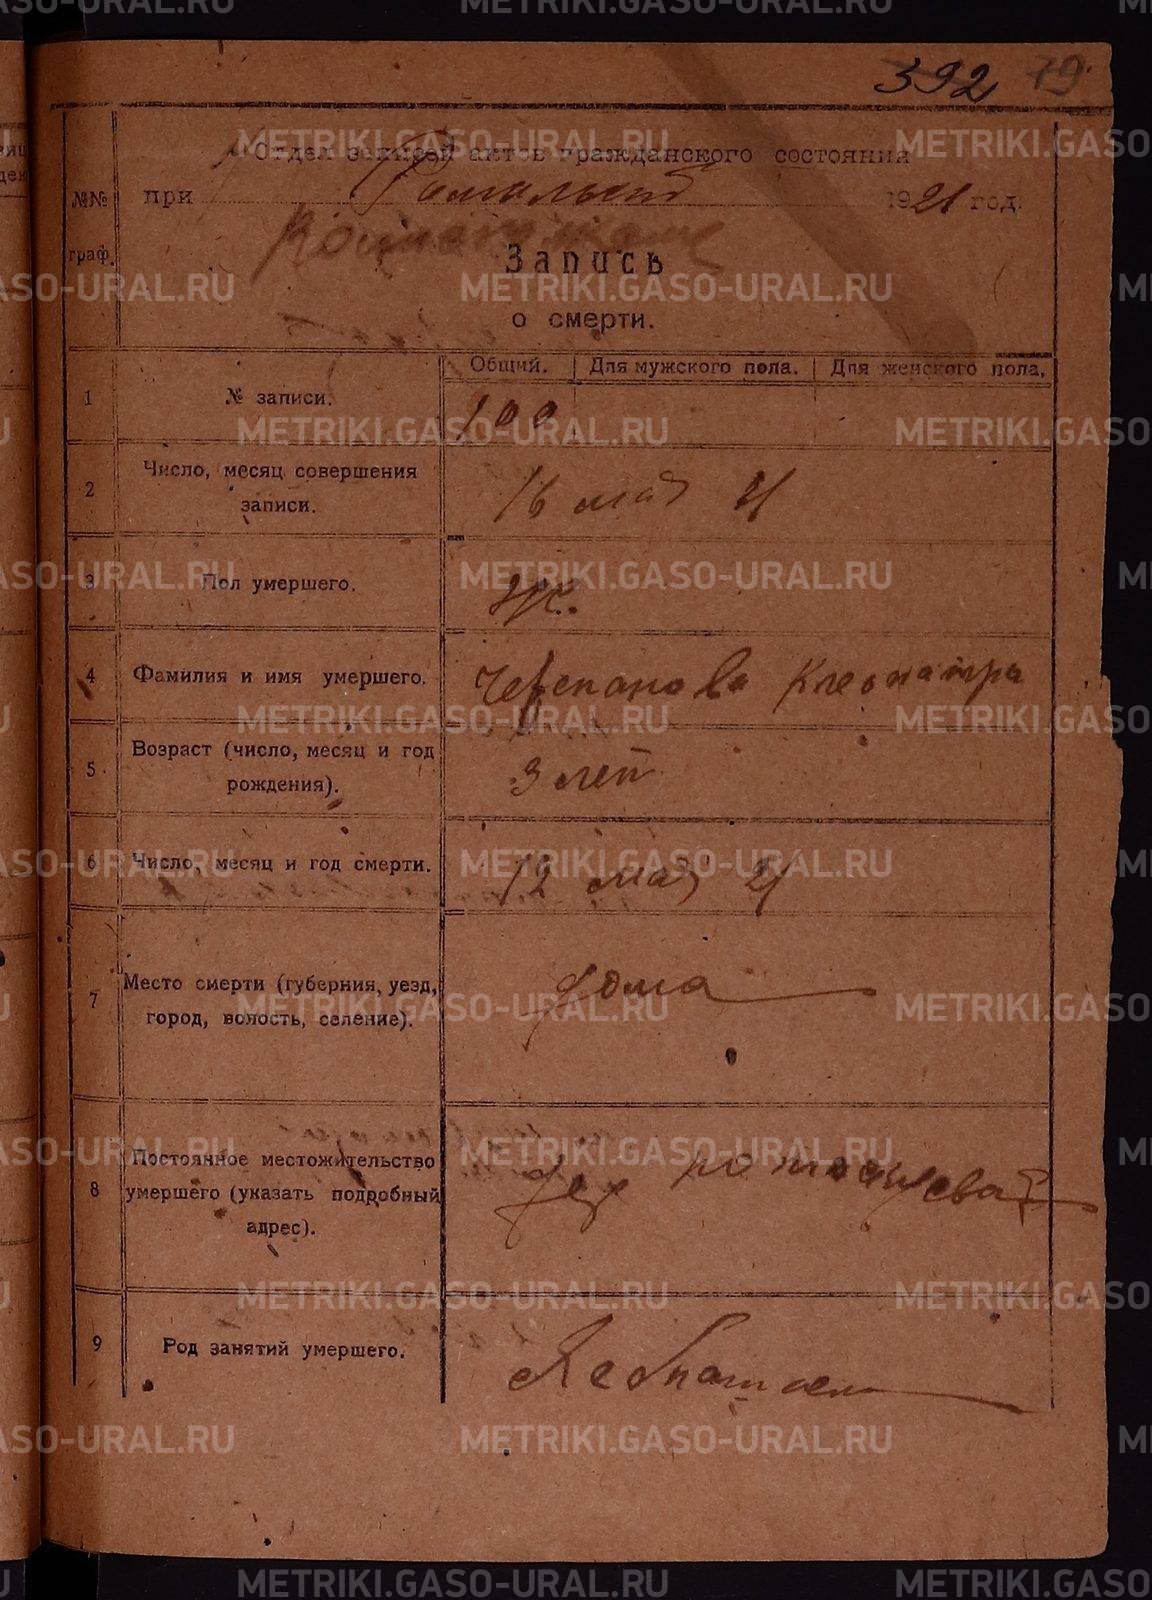 392 79
Отдел записей актов гражданского состояния
№№ граф.
при 1921 год.
Запись
о смерти.
Общий. Для мужского пола. Для женского пола.
1 № записи. 100
2 Число, месяц совершения
записи. 16 мая 21
3 Пол умершего. ж.
4 Фамилия и имя умершего. Черепанова Клеопатра
5 Возраст (число, месяц и год
рождения). 3 лет
6 Число, месяц и год смерти. 12 мая 21
7 Место смерти (губерния, уезд,
город, волость, селение). дома
8 Постоянное местожительство
умершего (указать подробный
адрес). дер
9 Род занятий умершего.
METRIKI.GASO-URAL.RU